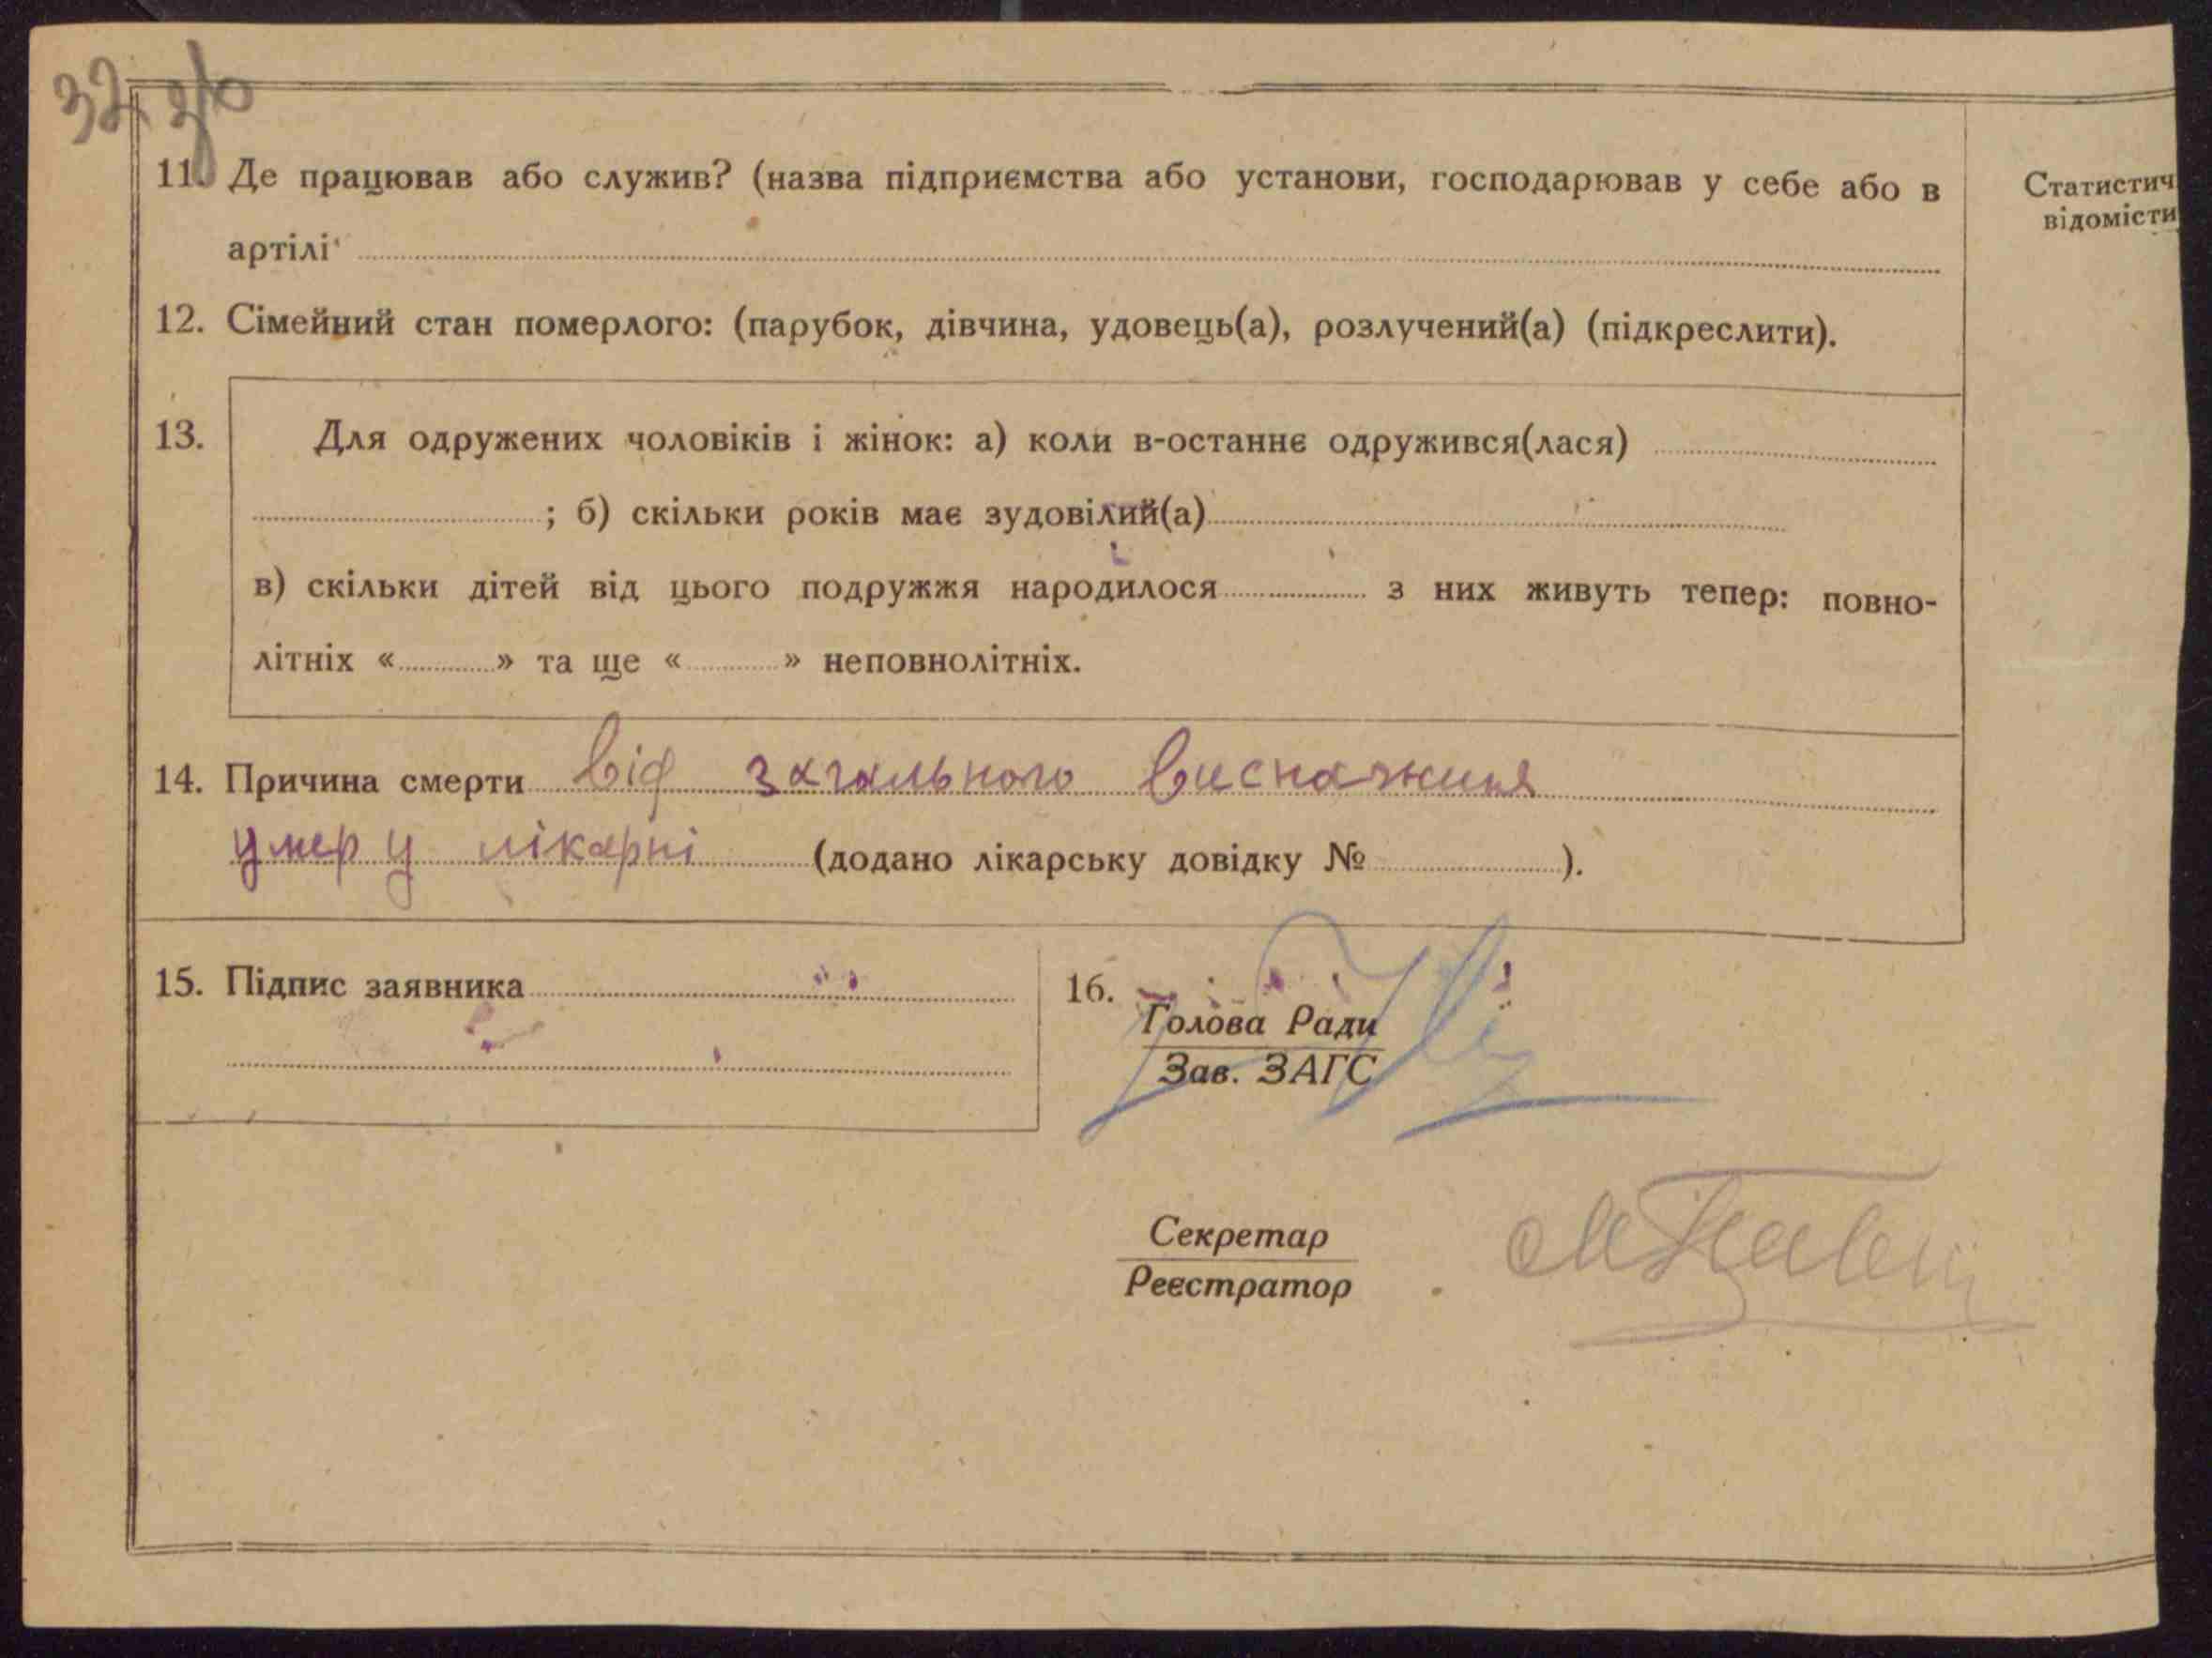 32
11. Де працював або служив? (назва підприємства або установи, господарював у себе або в
артілі
Статистич
відомісти
12. Сімейний стан померлого: (парубок, дівчина, удовець(а), розлучений(а) (підкреслити).
13. Для одружених чоловіків і жінок: а) коли в-останнє одружився(лася)
; б) скільки років має зудовілий(а)
в) скільки дітей від цього подружжя народилося з них живуть тепер: повно-
літніх « » та ще « » неповнолітніх.
14. Причина смерти від загального виснаження
умер у лікарні (додано лікарську довідку № ).
15. Підпис заявника
16. Голова Ради
Зав. ЗАГС
Секретар
Реєстратор